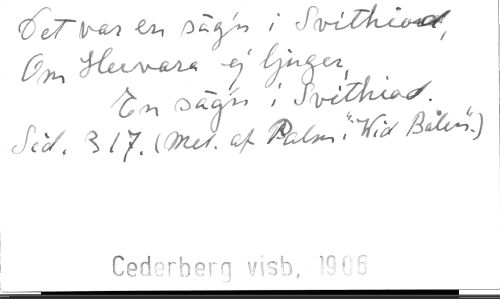 Det var en säg'n i Svithiod,
Om Hervara ej ljuger,
En säg'n i Svithiod.
Sid. 317. (Mel. af Palm: "Vid Bålen".)
Cederberg visb, 1906